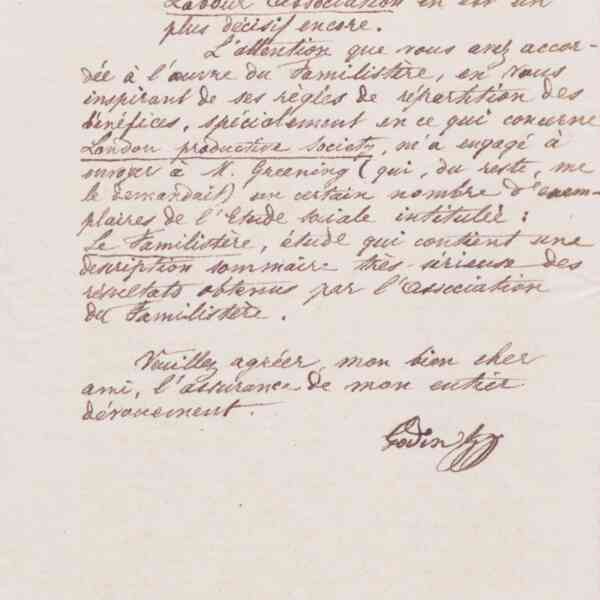 Labour Association en est un
plus décisif encore.
L'attention que vous avez accor-
dée à l'œuvre du Familistère, en vous
inspirant de ses règles de répartition des
bénéfices, spécialement en ce qui concerne
London productive Society, m'a engagé à
envoyer à M. Greening (qui, du reste, me
le demandait) un certain nombre d'exem-
plaires de l'Etude sociale intitulée :
Le Familistère, étude qui contient une
description sommaire très-sérieuse des
résultats obtenus par l'Association
du Familistère.
Veuillez agréer, mon bien cher
ami, l'assurance de mon entier
dévouement.
Godin